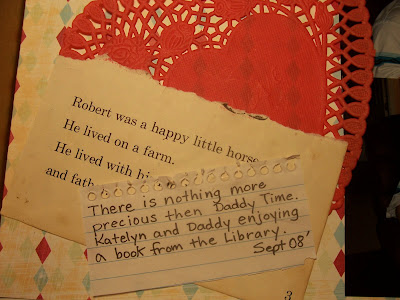 Robert was a happy little horse
He lived on a farm.
He lived with
and
There is nothing more
precious then Daddy Time.
Katelyn and Daddy enjoying
a book from the Library.
Sept 08'
3